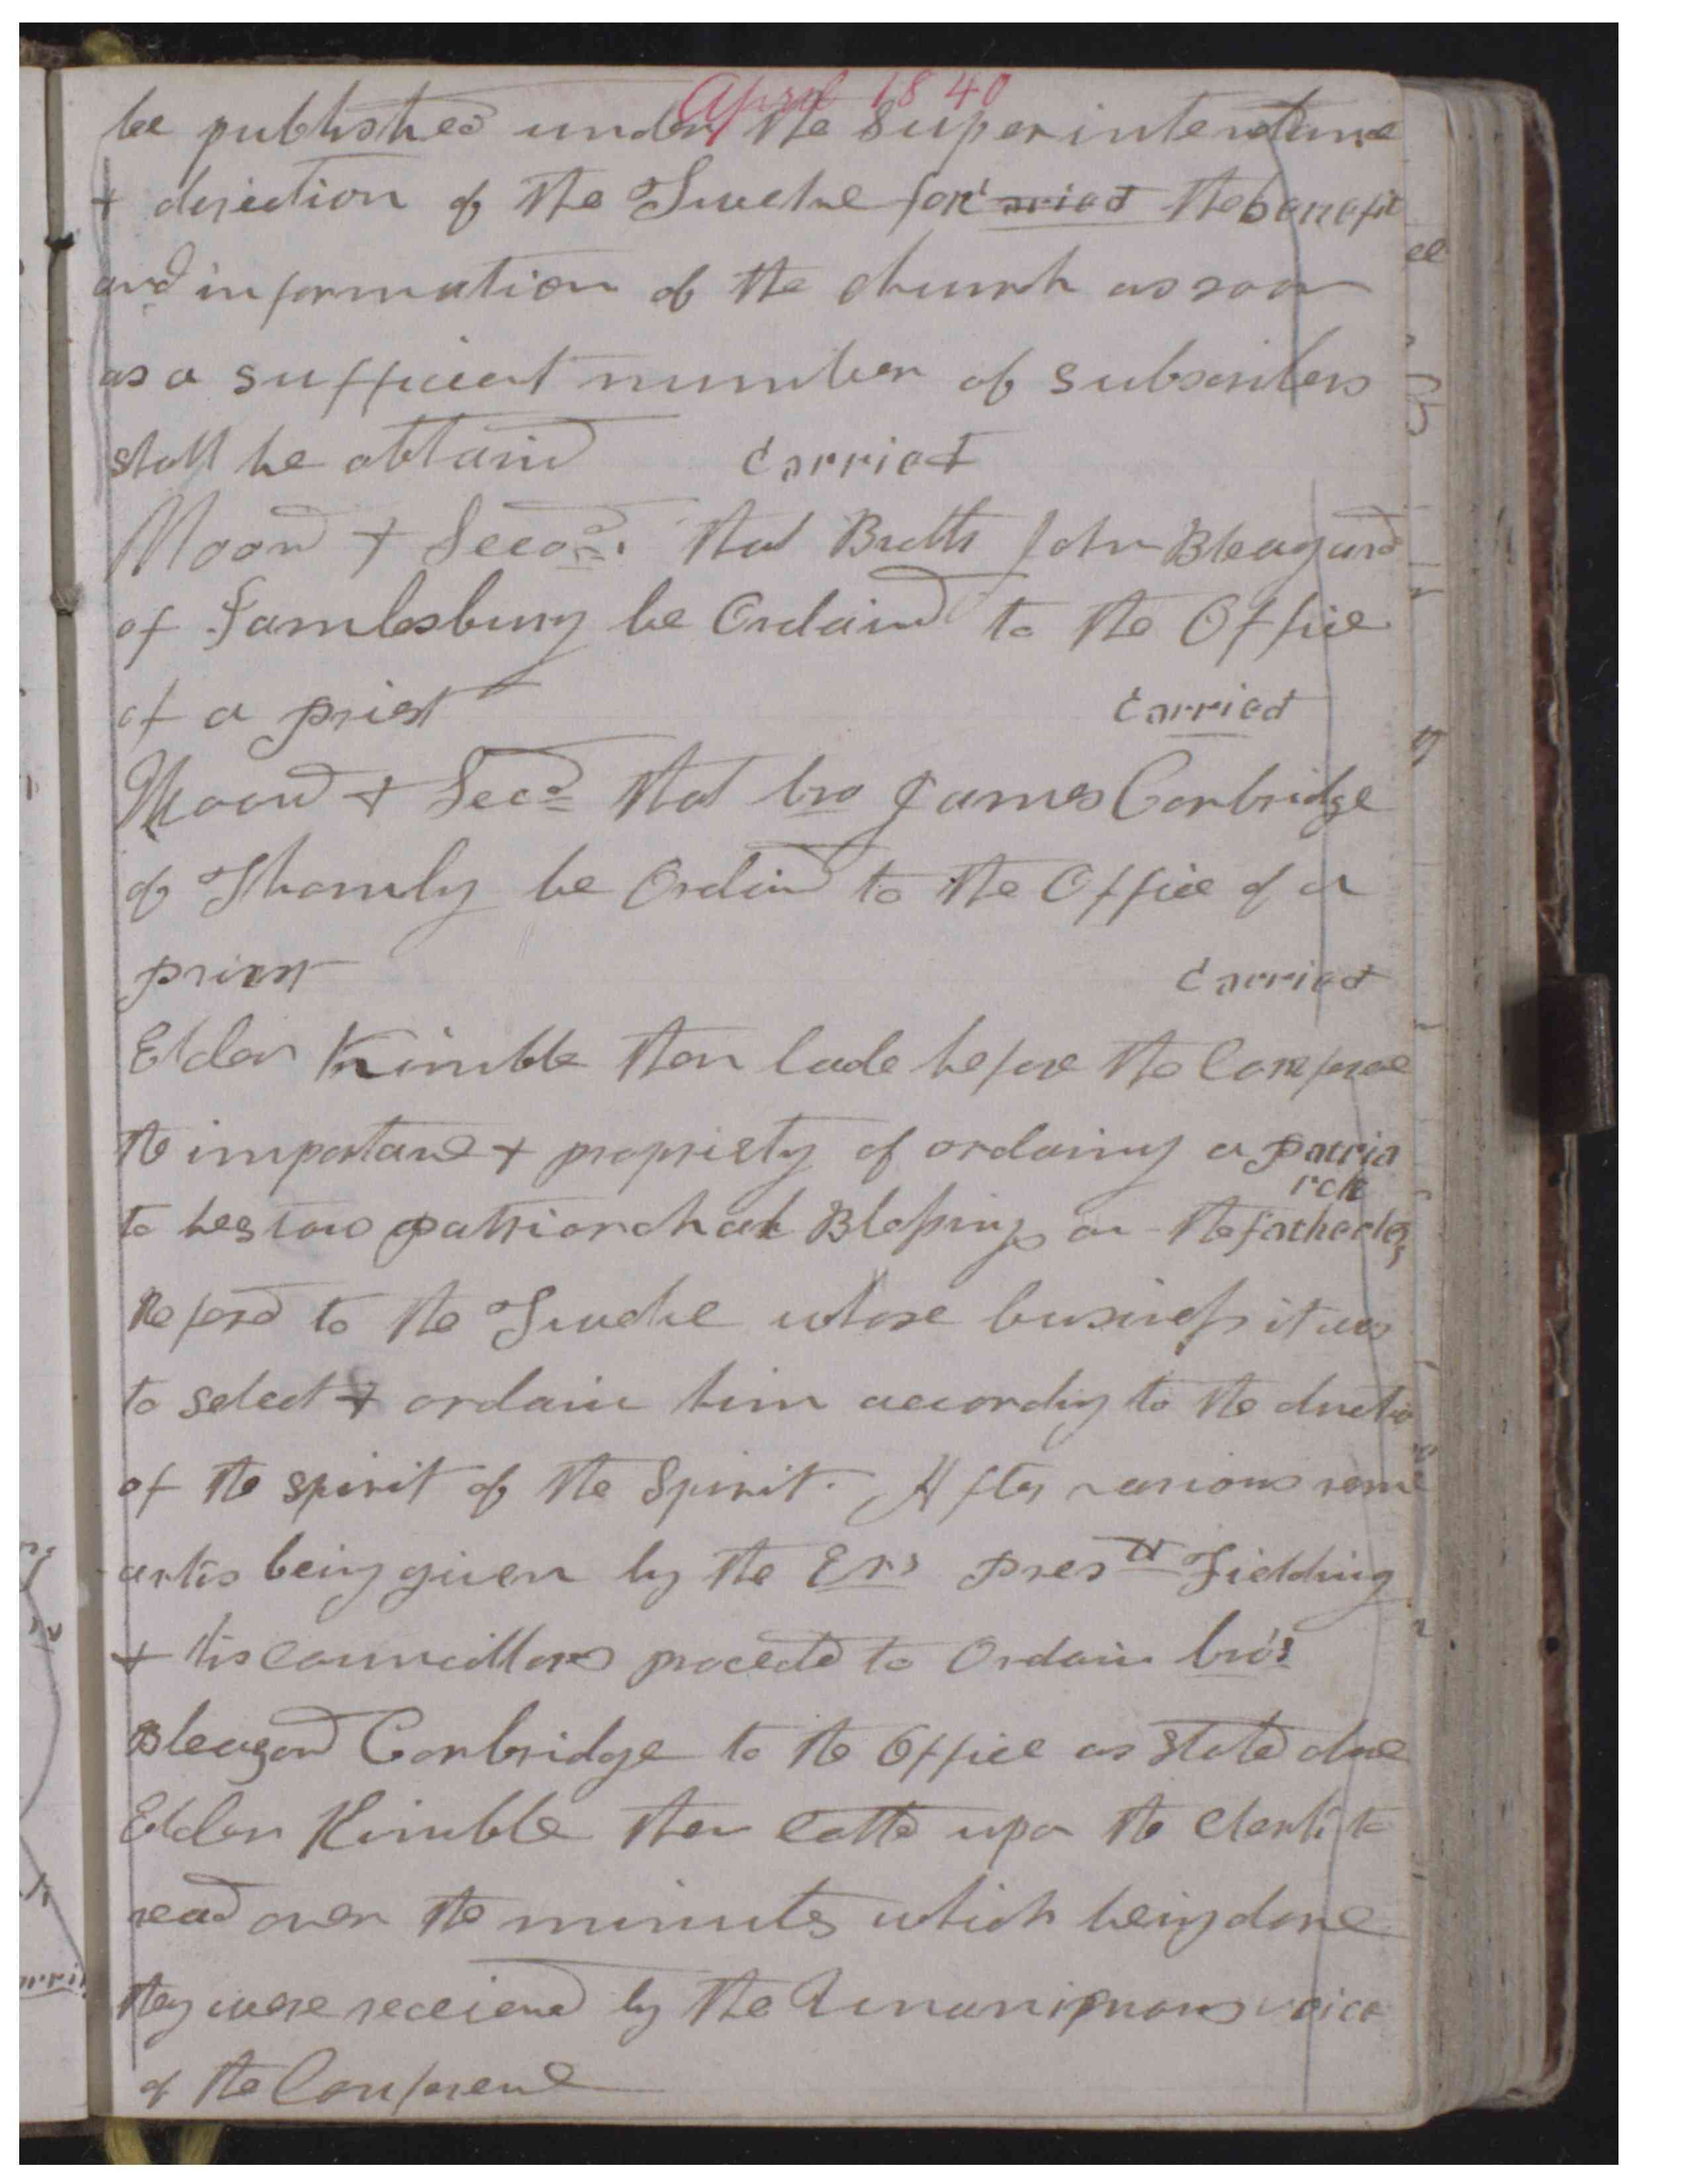 April 1840
be published under the Superintendance
+ direction of the Twelve for carried the benefit
and information of the church as soon
as a sufficient number of subscribers
shall be obtaind carried
Moovd + Second. that Broth John Bleazard
of Samlesbury be Ordaind to the Office
of a priest carried
Moovd + Secd that bro James Corbridge
of Thornly be Ordaind to the Office of a
priest carried
Elder Kimble then lade before the Conference
the importance + propriety of ordaining a patria
rch
to bestow patriarchal Blessings on the fatherless
Referd to the Twelve whose business it was
to select + ordain him according to the direction
of the spirit of the Spirit. After various rem
arks being given by the Ers Presdt Fielding
+ his councillors proceded to Ordain bro's
Bleazard Corbridge to the Office as stated above
Elder Kimble then calld upon the clerk to
read over the minutes which being done
they were received by the Unanimous voice
of the Conference